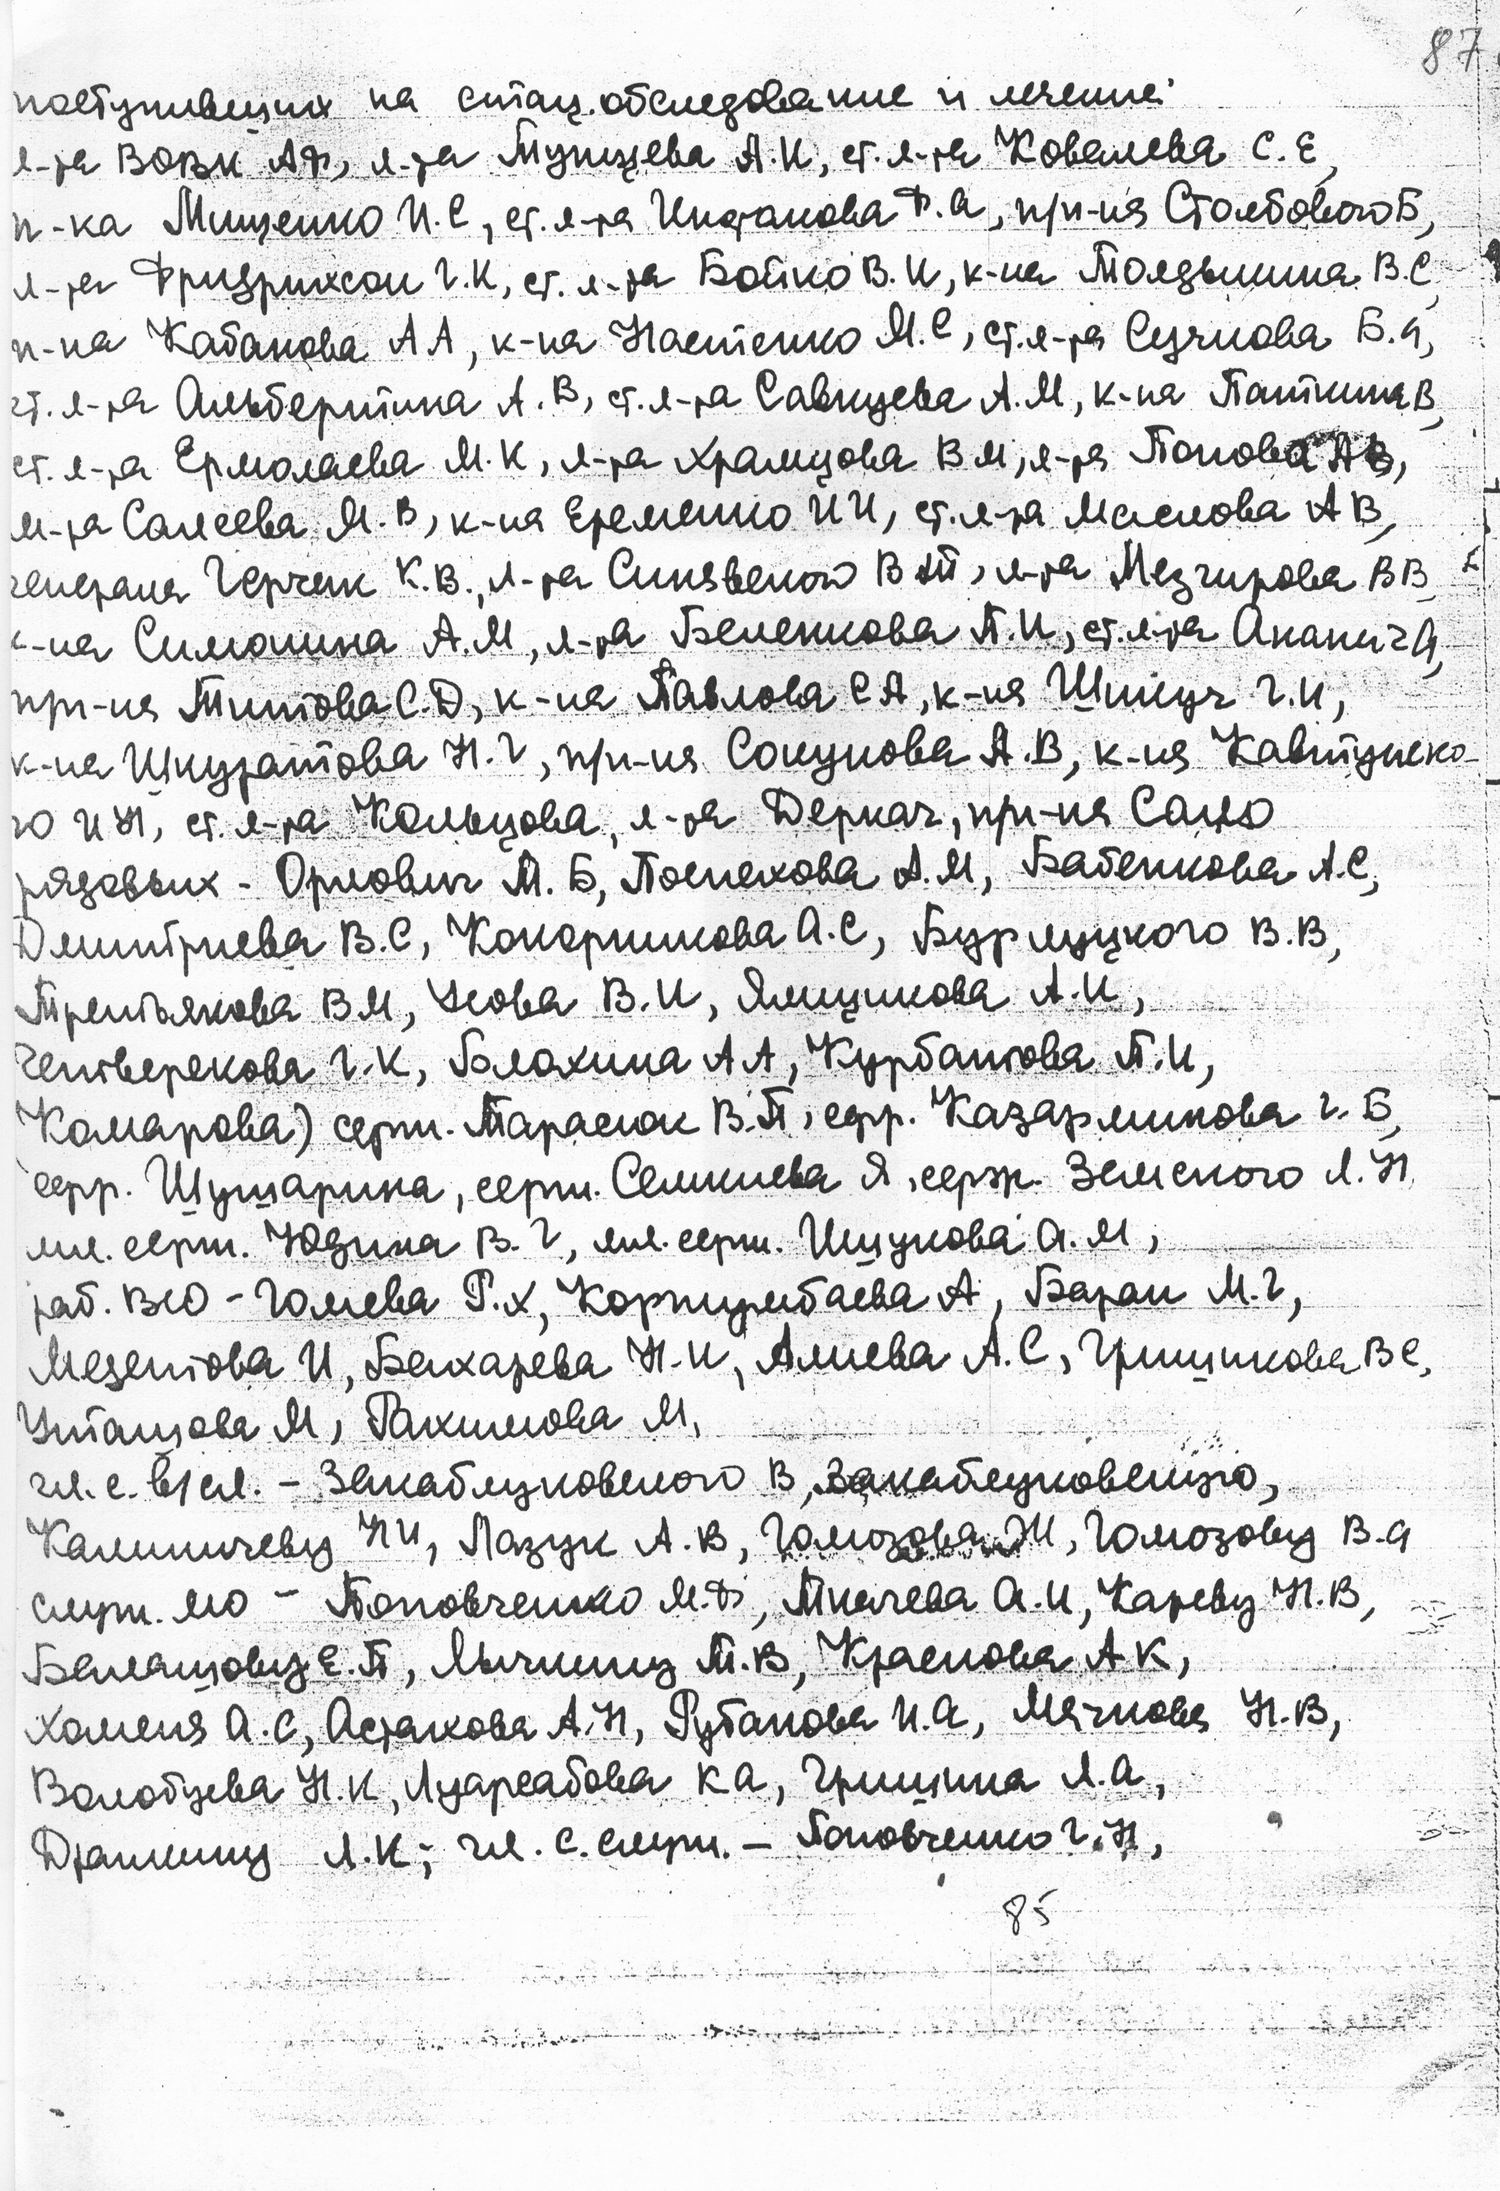 87
поступивших на стац. обследование и лечение:
л-та Вовк А.Ф, л-та Тунцева А.И, ст. л-та Ковалева С.Е,
п-ка Мищенко И.С, ст. л-та Ф.А, пр-ка Столбового Б,
л-та Фридрихсон Г.К, ст. л-та Бойко В.И, к-на Толдыкина В.С,
п-ка Кабанова А А, к-на Настенко М.С, ст. л-та Сучкова Б.Я,
ст. л-та Альбертина А.В, ст. л-та Савицева А.М, к-на Паткина В,
ст. л-та Ермолаева М.К, л-та Храмцова В М, л-та Попова А В,
м-ра Салеева М.В, к-на Еременко И И, ст. л-та Маслова А В,
генерала Герчик К.В., л-та Синявского В М, л-та Мезгирова В В,
к-на Симонина А.М, л-та Беленкова П.И, ст. л-та Ананич А,
пр-ка Титова С.Д, к-на Павлова С А, к-на Шинкуч Г.И,
к-на Шкуратова Н.Г, пр-ка Сокунова А.В, к-на Кавтунско-
го И Н, ст. л-та Кольцова, л-та Деркач, пр-ка Сало
рядовых - Орлович М.Б, Поспехова А.М, Бабенкова А.С,
Дмитриева В.С, Конорникова А.С, Бурлуцкого В.В,
Третьякова В М, Ускова В.И, Ямщикова А.И,
Четверекова Г.К, Блохина А А, Курбатова П.И,
Комарова) серж. Тарасюк В.П, ефр. Казармикова Г.Б,
ефр. Шушарина, серж. Семкиева Я, серж. Земского Л.Н
мл. серж. Юдина В.Г, мл. серж. Ищукова А.М,
раб. ВСО - Голиева Р.Х, Коржумбаева А, Баран М.Г,
Мезентова И, Бахарева Н.И, Алиева А.С, Гришикова В С,
Уташова М, Рахимова М,
чл. с. в/сл. - Закаблуковского В, Закаблуковскую,
Калиничеву Н И, Лазук А.В, Гомозова Ж, Гомозову В.Я
служ. МО - Поповченко М.Ф, Ткачева А.И, Кареву Н.В,
Балашову Е.П, Лычкину Т.В, Краснова А К,
Хоменя А.С, Астахова А.Н, Рубанова И.А, Мячкова Н.В,
Волобуева Н.К, Луарсабова К А, Гришина Л.А,
Драпкину Л.К; чл. с. служ. - Поповченко Г.Н,
85